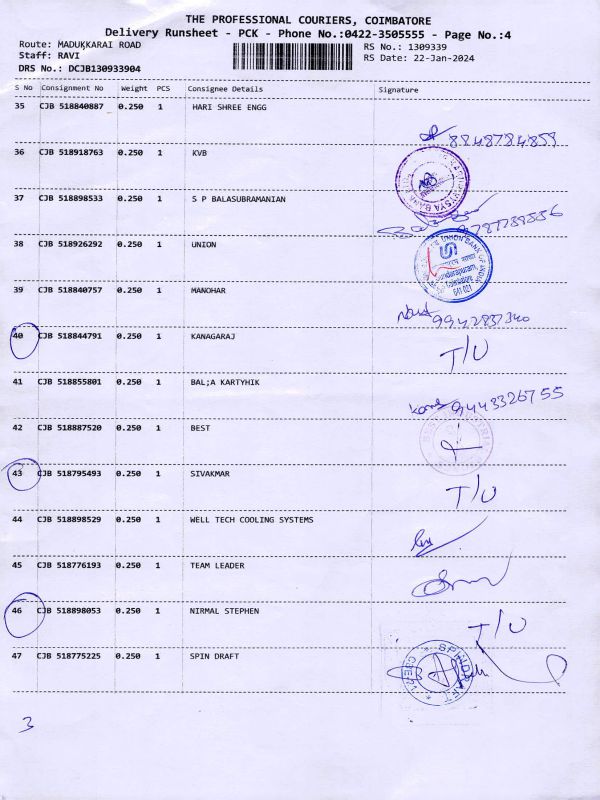 THE PROFESSIONAL COURIERS, COIMBATORE
Delivery Runsheet - PCK - Phone No.:0422-3505555 - Page No.:4
Route: MADUKKARAI ROAD
Staff: RAVI
DRS No.: DCJB130933904
RS No.: 1309339
RS Date: 22-Jan-2024
S No Consignment No Weight PCS Consignee Details Signature
35 CJB 518840887 0.250 1 HARI SHREE ENGG
8848784859
36 CJB 518918763 0.250 1 KVB
37 CJB 518898533 0.250 1 S P BALASUBRAMANIAN
9787788556
38 CJB 518926292 0.250 1 UNION
UNION BANK OF INDIA
Sundarapuram,
Coimbatore
641 021
39 CJB 518840757 0.250 1 MANOHAR
9942837340
40 CJB 518844791 0.250 1 KANAGARAJ
T/U
41 CJB 518855801 0.250 1 BAL;A KARTYHIK
9443326755
42 CJB 518887520 0.250 1 BEST
BEST
43 CJB 518795493 0.250 1 SIVAKMAR
T/U
44 CJB 518898529 0.250 1 WELL TECH COOLING SYSTEMS
45 CJB 518776193 0.250 1 TEAM LEADER
46 CJB 518898053 0.250 1 NIRMAL STEPHEN
T/U
47 CJB 518775225 0.250 1 SPIN DRAFT
SPINDRAFT
3